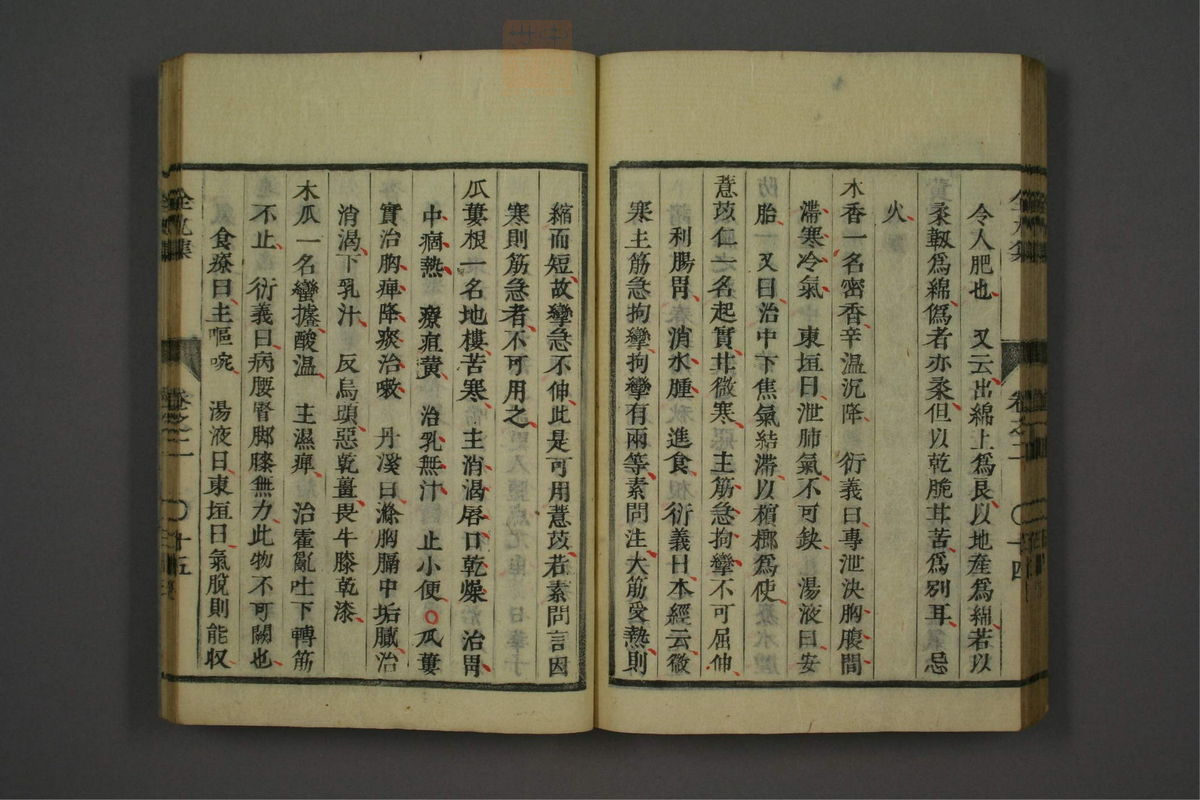 令人肥也　又云出綿上爲良以地産爲綿若以
柔靱爲綿僞者亦柔但以乾脆甘苦爲別耳　忌
火
木香一名密香辛温沉降　衍義曰專泄決胸腹間
滯寒冷氣　東垣曰泄肺氣不可缺　湯液曰安
胎　又曰治中下焦氣結滯以檳榔爲使
薏苡仁一名起實甘微寒　主筋急拘攣不可屈伸
利腸胃　消水腫　進食　衍義曰本經云微
寒主筋急拘攣拘攣有兩等素問注大筋受熱則
縮而短故攣急不伸此是可用薏苡若素問言因
寒則筋急者不可用之
瓜蔞根一名地樓苦寒　主消渴唇口乾燥　治胃
中痼熱　療疸黄　治乳無汁　止小便○瓜蔞
實治胸痺降痰治嗽　丹溪曰滌胸膈中垢膩治
消渴下乳汁　反烏頭惡乾薑畏牛膝乾漆
木瓜一名蠻攄酸温　主濕痺　治霍亂吐下轉筋
不止　衍義曰病腰腎脚膝無力此物不可闕也
食療曰主嘔啘　湯液曰東垣曰氣脱則能収
全九集　卷之二　○十四
全九集　卷之二　○十五